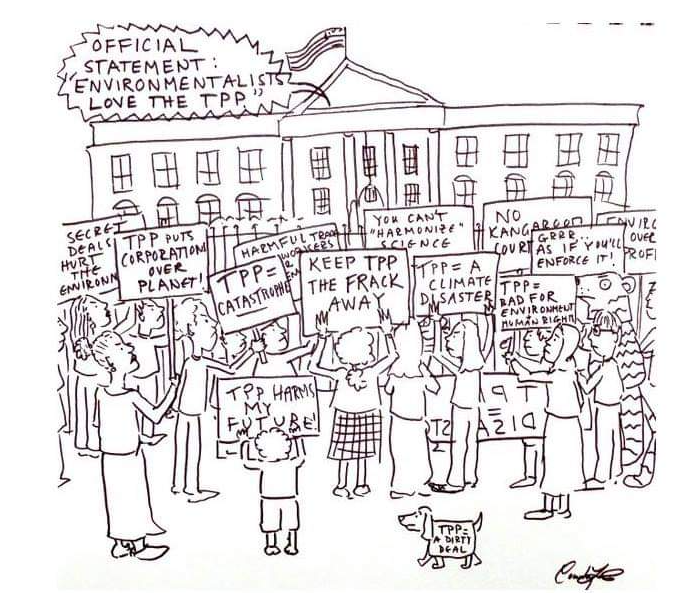 OFFICIAL
STATEMENT:
"ENVIRONMENTALISTS
LOVE THE TPP."
SECRET
DEALS
HURT
THE
ENVIRONM
TPP PUTS
CORPORATION
OVER
PLANET!
HARMFUL TRADE
WORKERS
TPP=
CATASTROPHE
YOU CAN'T
"HARMONIZE"
SCIENCE
KEEP TPP
THE FRACK
AWAY
TPP = A
CLIMATE
DISASTER
NO
KANGAROO
COURT
GRRR..
AS IF YOU'LL
ENFORCE IT!
ENVIRO
OVER
PROFI
TPP=
BAD FOR
ENVIRONMENT
HUMAN RIGHT
TPP HARMS
MY
FUTURE!
TPP
=
DISAST
TPP=
A DIRTY
DEAL